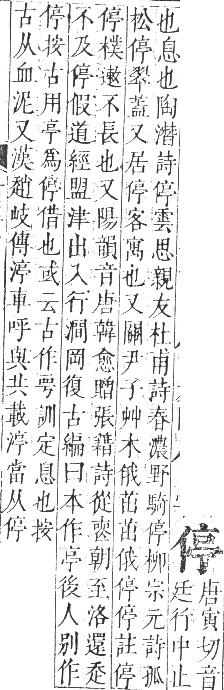 停
唐寅切音
廷行中止
也息也陶潛詩停雲思親友杜甫詩春濃野騎停柳宗元詩孤
松停翠蓋又居停客寓也又關尹子艸木俄茁茁俄停停註停
停樸遬不長也又陽韻音唐韓愈贈張籍詩從喪朝至洛還走
不及停假道經盟津出入行澗岡復古編曰本作亭後人別作
停按古用亭爲停借也或云古作甹訓定息也按
古从血泥又漢趙岐傳渟車呼與共載渟當从停